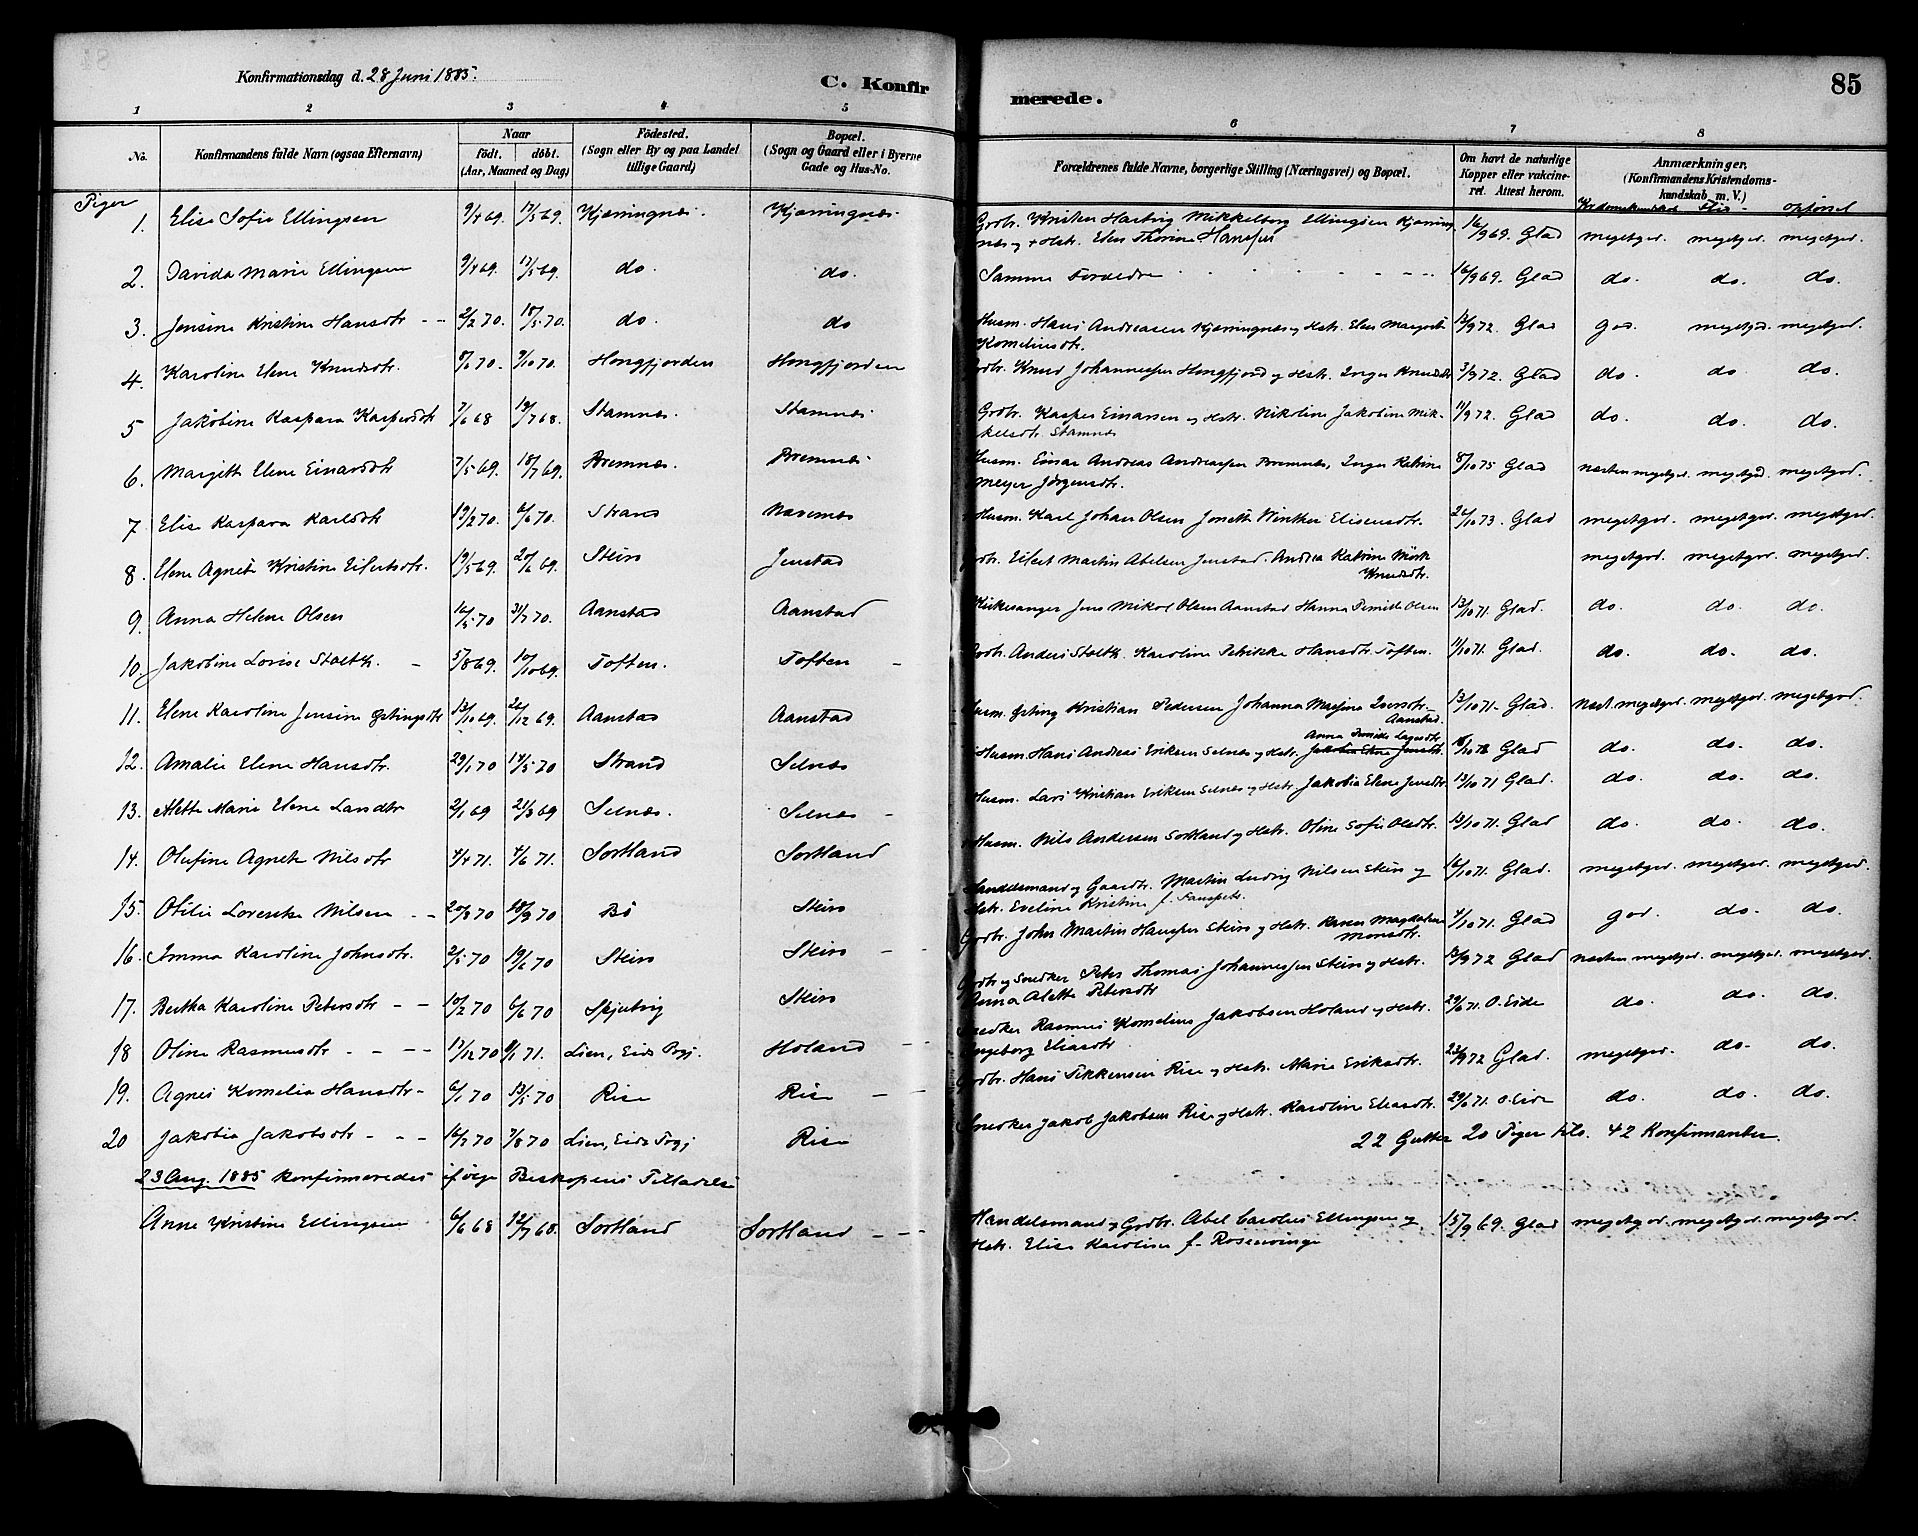 Konfirmationsdag d. 28 Juni 1885.
C. Konfir
merede.
85
1 2 3 4 5 6 7 8
No.
Konfirmandens fulde Navn (ogsaa Efternavn)
Naar
födt. döbt.
(Aar, Maaned og Dag)
Födested.
(Sogn eller By og paa Landet
tillige Gaard)
Bopæl.
(Sogn og Gaard eller i Byerne
Gade og Hus-No.
Forældrenes fulde Navne, borgerlige Stilling (Næringsvei) og Bopæl.
Om havt de naturlige
Kopper eller vakcine-
ret. Attest herom.
Anmærkninger.
(Konfirmandens Kristendoms-
kundskab m. V.)
Flid - opförsel
Piger
1. Elise Sofie Ellingsen 9/4 69. 17/5 69. Kjærringnæs. Kjærringnæs. Grdbr. Kristen Hartvig Mikkelborg Ellingsen Kjærring
næs og + Hstr. Elen Thorine Hansen 16/9 69. Glad megetgod. megetgod. megetgod.
2. Davida Marie Ellingsen 9/4 69. 17/5 69. do. do. Samme Foreldre 16/9 69. Glad do. do. do.
3. Jensine Kristine Hansdtr 2/2 70. 18/5 70. do. do Husm. Hans Andreassen Kjærringnæs og Hstr. Elen Margrete
Korneliusdtr. 13/9 72. Glad god. megetgod. megetgod.
4. Karoline Elene Knudsdtr. 8/6 70. 9/10 70. Hongfjorden Hongfjorden Gdbr. Knud Johannessen Hongfjord og Hstr. Inger Knudsdtr 3/9 72. Glad do. do do.
5 Jakobine Kaspara Kaspersdtr 7/6 68 19/7 68. Stamnæs. Stamnæs Grdbr. Kasper Einarsen og Hstr. Nikoline Jakobine Mik-
kelsdtr. Stamnæs 11/9 72. Glad do. do. do.
6. Margitte Elene Einarsdtr 7/5 69. 18/7 69. Bremnæs. Bremnæs Husm. Einar Andreas Andreassen Bremnæs, Inger Katrine
Meyer Jörgensdtr. 8/10 75 Glad næsten megetgod. megetgod. megetgod.
7. Elise Kaspara Karlsdtr 19/2 70. 6/6 70. Strand Husm. Karl Johan Olsen Jonette Winther Elisensdtr. 26/10 73. Glad megetgod. megetgod. megetgod.
8. Elene Agnete Kristine Eilertsdtr. 19/5 69. 20/6 69. Steiro Jenstad Gdbr. Eilert Martin Abelsen Jenstad. Andrea Katrine Mörk
Knudsdtr. megetgod. megetgod. megetgod.
9. Anna Helene Olsen 16/5 70 31/7 70. Aanstad Aanstad Kirkesanger Jens Mikal Olsen Aanstad Hanna Olsen 13/10 71. Glad. do. do. do.
10. Jakobine Lovise Stolth. 5/8 69. 10/10 69. Toften. Toften Gdbr. Anders Stolth. Karoline Petrikke Hansdtr. Toften. 11/10 71. Glad do. do. do.
11. Elene Karoline Jensine Ostingsdtr 13/10 69. 26/12 69. Aanstad Aanstad Husm. Osting Kristian Pedersen Johanna Iversdtr.
Aanstad. 13/10 71. Glad. næst. megetgod. megetgod. megetgod.
12. Amalie Elene Hansdtr. 29/1 70 14/5 70 Strand Selnæs Husm. Hans Andreas Eriksen Selnæs og Hstr. Jakobia Elene Jensdtr. Glad do. do. do.
13. Alette Marie Elene Larsdtr 2/1 69 21/3 69 Selnæs. Selnæs Husm. Lars Kristian Eriksen Selnæs og Hstr. Jakobia Elene Jensdtr 13/10 71 Glad. do. do. do.
14. Olufine Agnete Nilsdtr 4/4 71. 4/6 71. Sortland Sortland Husm. Nils Andersen Sortland og Hstr. Oline Sofie Olsdtr. 13/10 71. Glad do. do. do.
15. Otilie Lorentze Nilsen 20/3 70 18/9 70 Bö Steiro Handelsmand og Gaardbr. Martin Ludvig Nilsen Steiro og
Hstr. Eveline Kristine f. 16/10 71. Glad. megetgod. megetgod. megetgod.
16. Imma Karoline Johnsdtr. 2/5 70 19/6 70 Steiro Steiro Grdbr. John Martin Hansen Steiro og Hstr. Karen Magdalene
Monsdtr. 4/10 71. Glad god. do. do.
17. Bertha Karoline Petersdtr 10/2 70 6/6 70 Spjutvig Steiro Grdbr og Snedker Peter Thomas Johannessen Steiro og Hstr.
Anna Alette Petersdtr 12/9 72 Glad næsten megetgod. megetgod. megetgod.
18 Oline Rasmusdtr 17/12 70 9/1 71. Lien, Eids Prgj. Holand Snedker Rasmus Kornelius Jakobsen Holand og Hstr.
Ingeborg Eliasdtr 29/6 71. O. Eide do. do. do.
19. Agnes Kornelia Hansdtr 6/1 70 13/5 70 Rise Rise Grdbr. Hans Pekkensen Rise og Hstr. Marie Eriksdtr. 23/9 72 Glad. megetgod. do. do.
20 Jakobia Jakobsdtr 16/7 70 7/8 70 Lien, Eids Prgj Rise Snedker Jakob Jakobsen Rise og Hstr. Karoline Eliasdtr. 29/6 71. O. Eide do. do. do.
22 Gutter 20 Piger tils. 42 Konfirmanter.
23 Aug. 1885 konfirmeredes ifölge Biskopens Tilladelse
Anne Kristine Ellingsen 6/6 68 12/7 68. Sortland Sortland Handelsmand og Grdbr. Abel Carolus Ellingsen og
Hstr. Elise Karoline f. Rosenvinge 15/9 69. Glad megetgod. megetgod. megetgod.